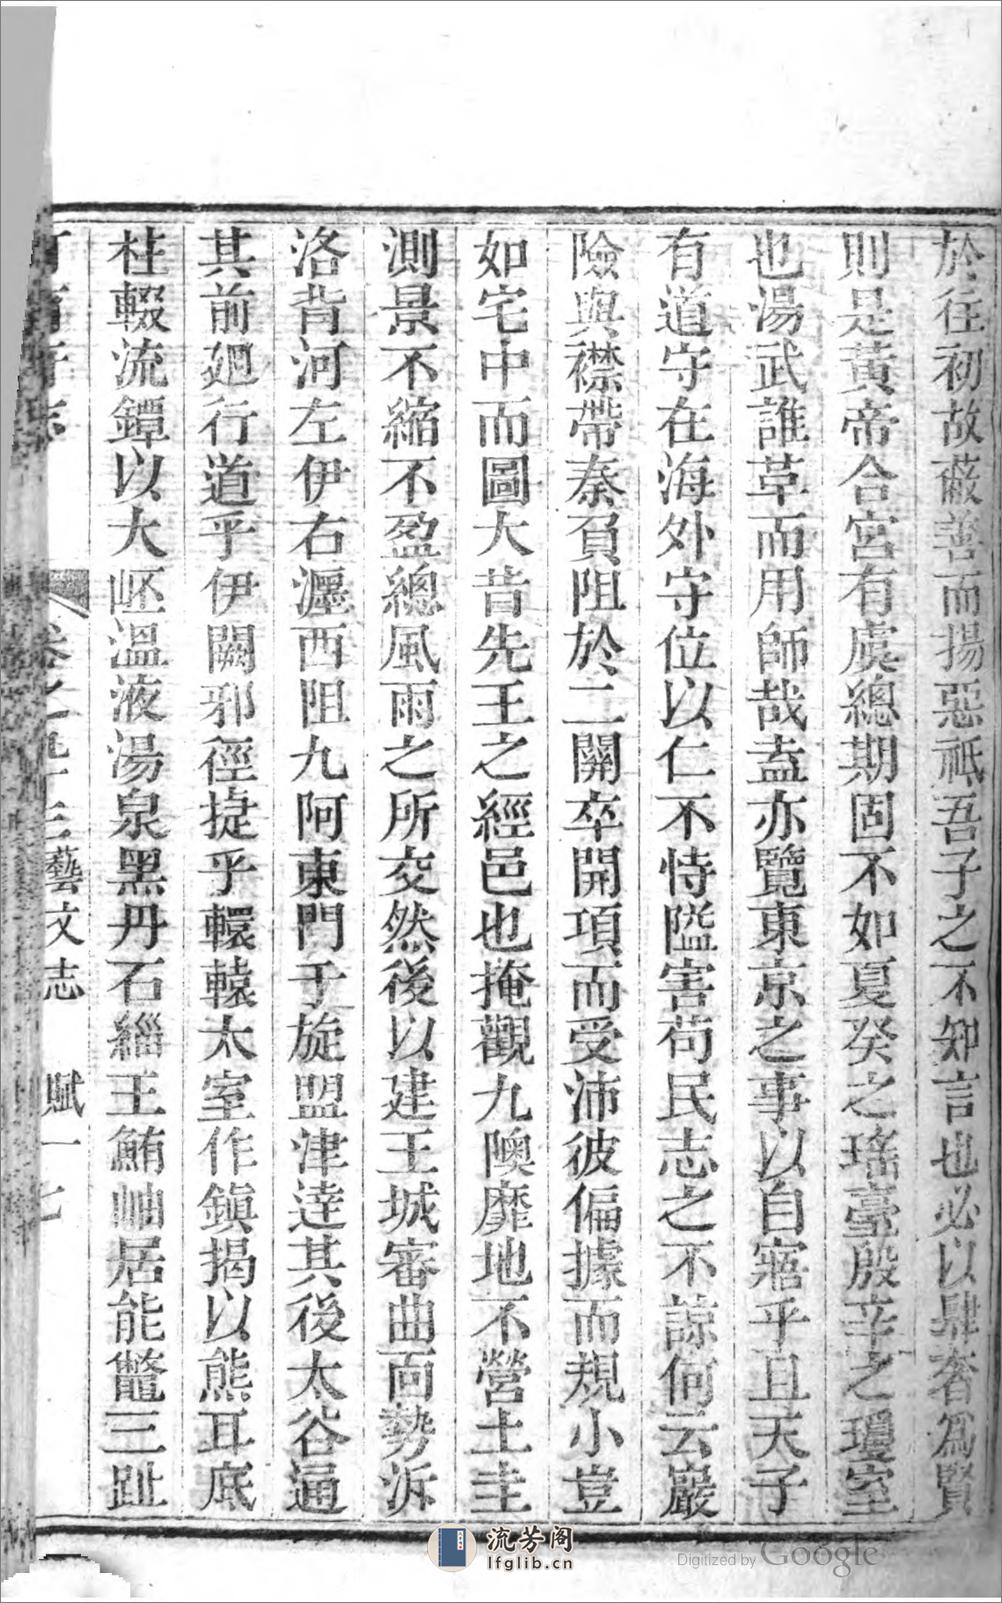 於往初故蔽善而揚惡祗吾子之不知言也必以肆奢為賢
則是黃帝合宮有虞總期固不如夏癸之瑤臺殷辛之瓊室
也湯武誰革而用師哉盍亦覽東京之事以自寤乎且天子
有道守在海外守位以仁不恃隘害苟民志之不諒何云巖
險與襟帶秦負阻於二關卒開項而受沛彼偏據而規小豈
如宅中而圖大昔先王之經邑也掩觀九隩靡地不營土圭
測景不縮不盈總風雨之所交然後以建王城審曲面勢泝
洛背河左伊右瀍西阻九阿東門于旋盟津達其後太谷通
其前廻行道乎伊闕邪徑捷乎轘轅太室作鎮揭以熊耳底
柱輟流鐔以大岯溫液湯泉黑丹石緇王鮪岫居能鼈三趾
卷之九十三藝文志 賦一 七
流芳阁
lfglib.cn
Digitized by Google